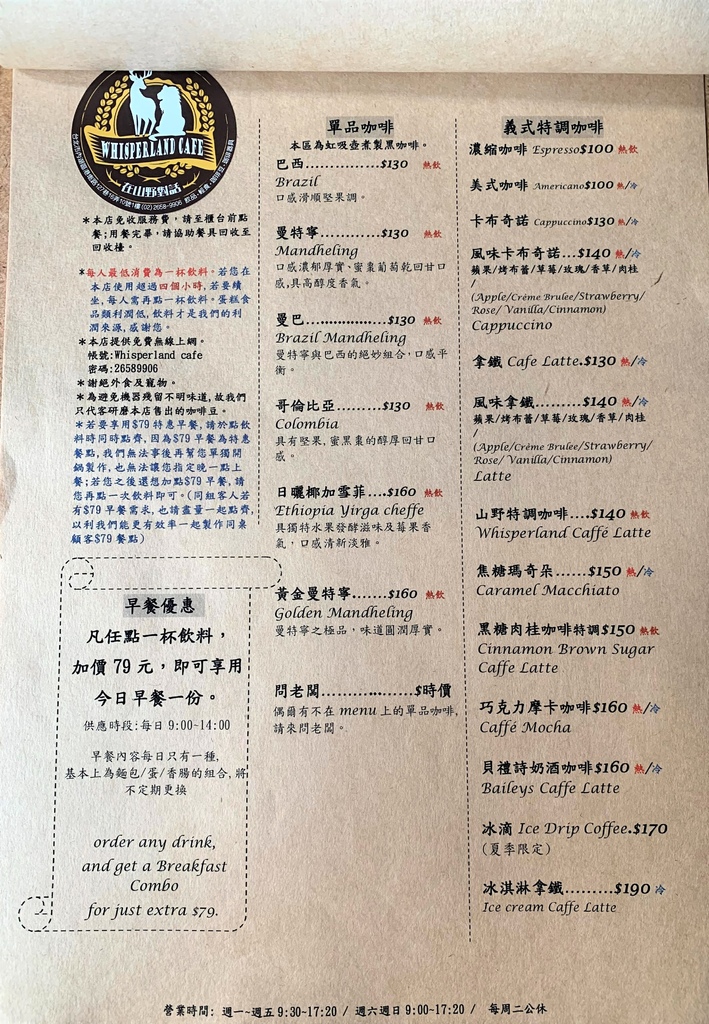 WHISPERLAND CAFE
在山野對話
(02) 2658-9906
*本店免收服務費，請至櫃台前點
餐;用餐完畢，請協助餐具回收至
回收檯。
*每人最低消費為一杯飲料。若您在
本店使用超過四個小時,若要續
坐,每人需再點一杯飲料。蛋糕食
品類利潤低,飲料才是我們的利
潤來源,感謝您。
*本店提供免費無線上網。
帳號:Whisperland cafe
密碼:26589906
*謝絕外食及寵物。
*為避免機器殘留不明味道,故我們
只代客研磨本店售出的咖啡豆。
*若要享用$79特惠早餐,請於點飲
料時同時點齊,因為$79早餐為特惠
餐點,我們無法事後再幫您單獨開
鍋製作,也無法讓您指定晚一點上
餐;若您之後還想加點$79早餐,請
您再點一次飲料即可。(同組客人若
有$79早餐需求,也請盡量一起點齊,
以利我們能更有效率一起製作同桌
顧客$79餐點)
早餐優惠
凡任點一杯飲料，
加價 79 元，即可享用
今日早餐一份。
供應時段:每日 9:00~14:00
早餐內容每日只有一種,
基本上為麵包/蛋/香腸的組合,將
不定期更換
order any drink,
and get a Breakfast
Combo
for just extra $79.
單品咖啡
本區為虹吸壺煮製黑咖啡。
巴西...............$130 熱飲
Brazil
口感滑順堅果調。
曼特寧.............$130 熱飲
Mandheling
口感濃郁厚實、蜜棗葡萄乾回甘口
感,具高醇度香氣。
曼巴................$130 熱飲
Brazil Mandheling
曼特寧與巴西的絕妙組合,口感平
衡。
哥倫比亞..........$130 熱飲
Colombia
具有堅果,蜜黑棗的醇厚回甘口
感。
日曬椰加雪菲....$160 熱飲
Ethiopia Yirga cheffe
具獨特水果發酵滋味及莓果香
氣，口感清新淡雅。
黃金曼特寧.......$160 熱飲
Golden Mandheling
曼特寧之極品，味道圓潤厚實。
問老闆..................$時價
偶爾有不在 menu 上的單品咖啡,
請來問老闆。
義式特調咖啡
濃縮咖啡 Espresso$100 熱飲
美式咖啡 Americano$100 熱/冷
卡布奇諾 Cappuccino$130 熱/冷
風味卡布奇諾...$140 熱/冷
蘋果/烤布蕾/草莓/玫瑰/香草/肉桂
/
(Apple/Crème Brulee/Strawberry/
Rose/ Vanilla/Cinnamon)
Cappuccino
拿鐵 Cafe Latte.$130 熱/冷
風味拿鐵..........$140 熱/冷
蘋果/烤布蕾/草莓/玫瑰/香草/肉桂
/
(Apple/Crème Brulee/Strawberry/
Rose/ Vanilla/Cinnamon)
Latte
山野特調咖啡....$140 熱飲
Whisperland Caffé Latte
焦糖瑪奇朵......$150 熱/冷
Caramel Macchiato
黑糖肉桂咖啡特調$150 熱飲
Cinnamon Brown Sugar
Caffe Latte
巧克力摩卡咖啡$160 熱/冷
Caffé Mocha
貝禮詩奶酒咖啡$160 熱/冷
Baileys Caffe Latte
冰滴 Ice Drip Coffee.$170
(夏季限定)
冰淇淋拿鐵.........$190 冷
Ice cream Caffe Latte
營業時間: 週一~週五 9:30-17:20 / 週六週日 9:00~17:20 / 每周二公休